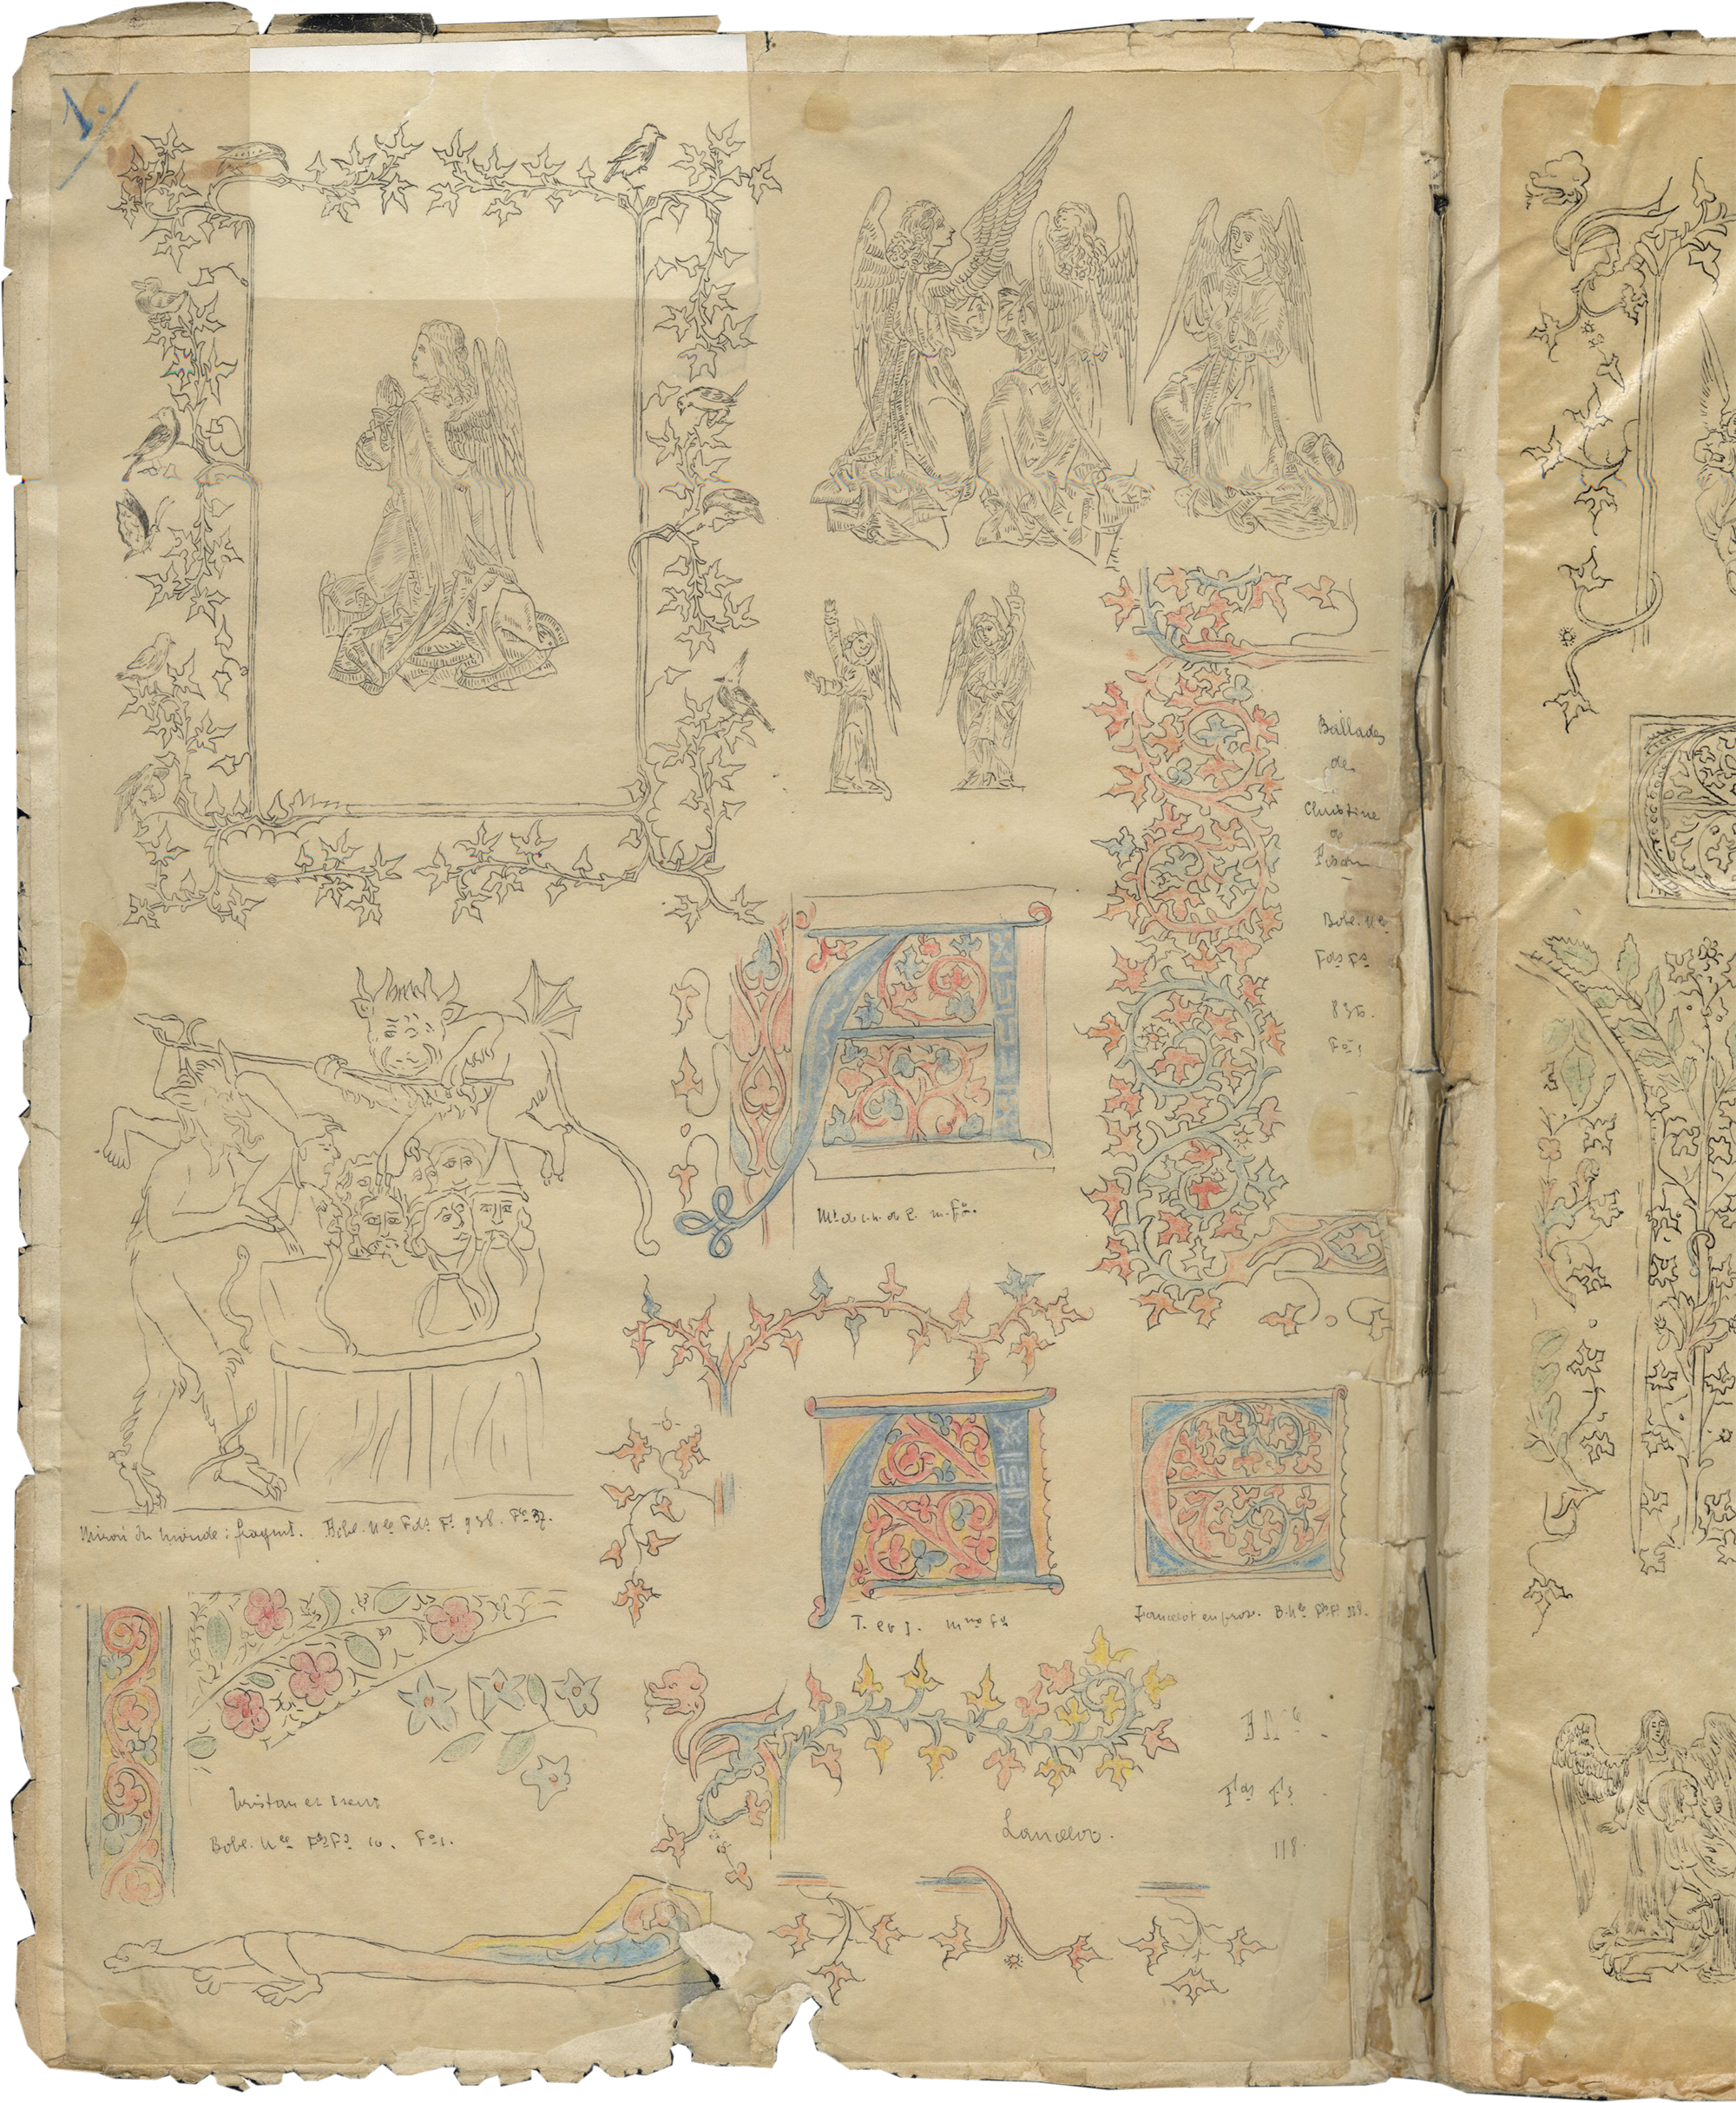 1.
Ballades
de
Christine
de
Pisan
Bibl. Nle
Fds Fs
836.
Fo 1
Ms de C.h. de P. m. Fo.
Miroir du monde : fragmt. Bibl. Nle Fds Fs 938. Fo 37.
T. et I. mme Fo
Lancelot en prose. B. Nle Fds Fs 118.
Tristan et Iseut
Bibl. Nle Fds Fs 10. Fo 1.
Lancelot.
Fds Fs
118.